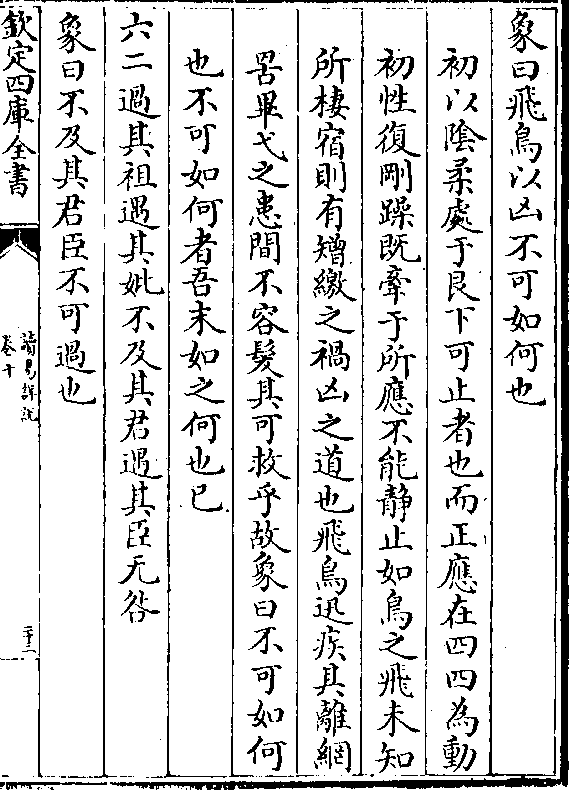 象曰飛鳥以凶不可如何也
初以陰柔處于艮下可止者也而正應在四四為動
初性復剛躁既牽于所應不能静止如鳥之飛未知
所棲宿則有矰繳之禍凶之道也飛鳥迅疾其離網
罟畢弋之患間不容髮其可救乎故象曰不可如何
也不可如何者吾末如之何也已
六二過其祖遇其妣不及其君遇其臣无咎
象曰不及其君臣不可過也
欽定四庫全書
讀易詳說
卷十
二十二